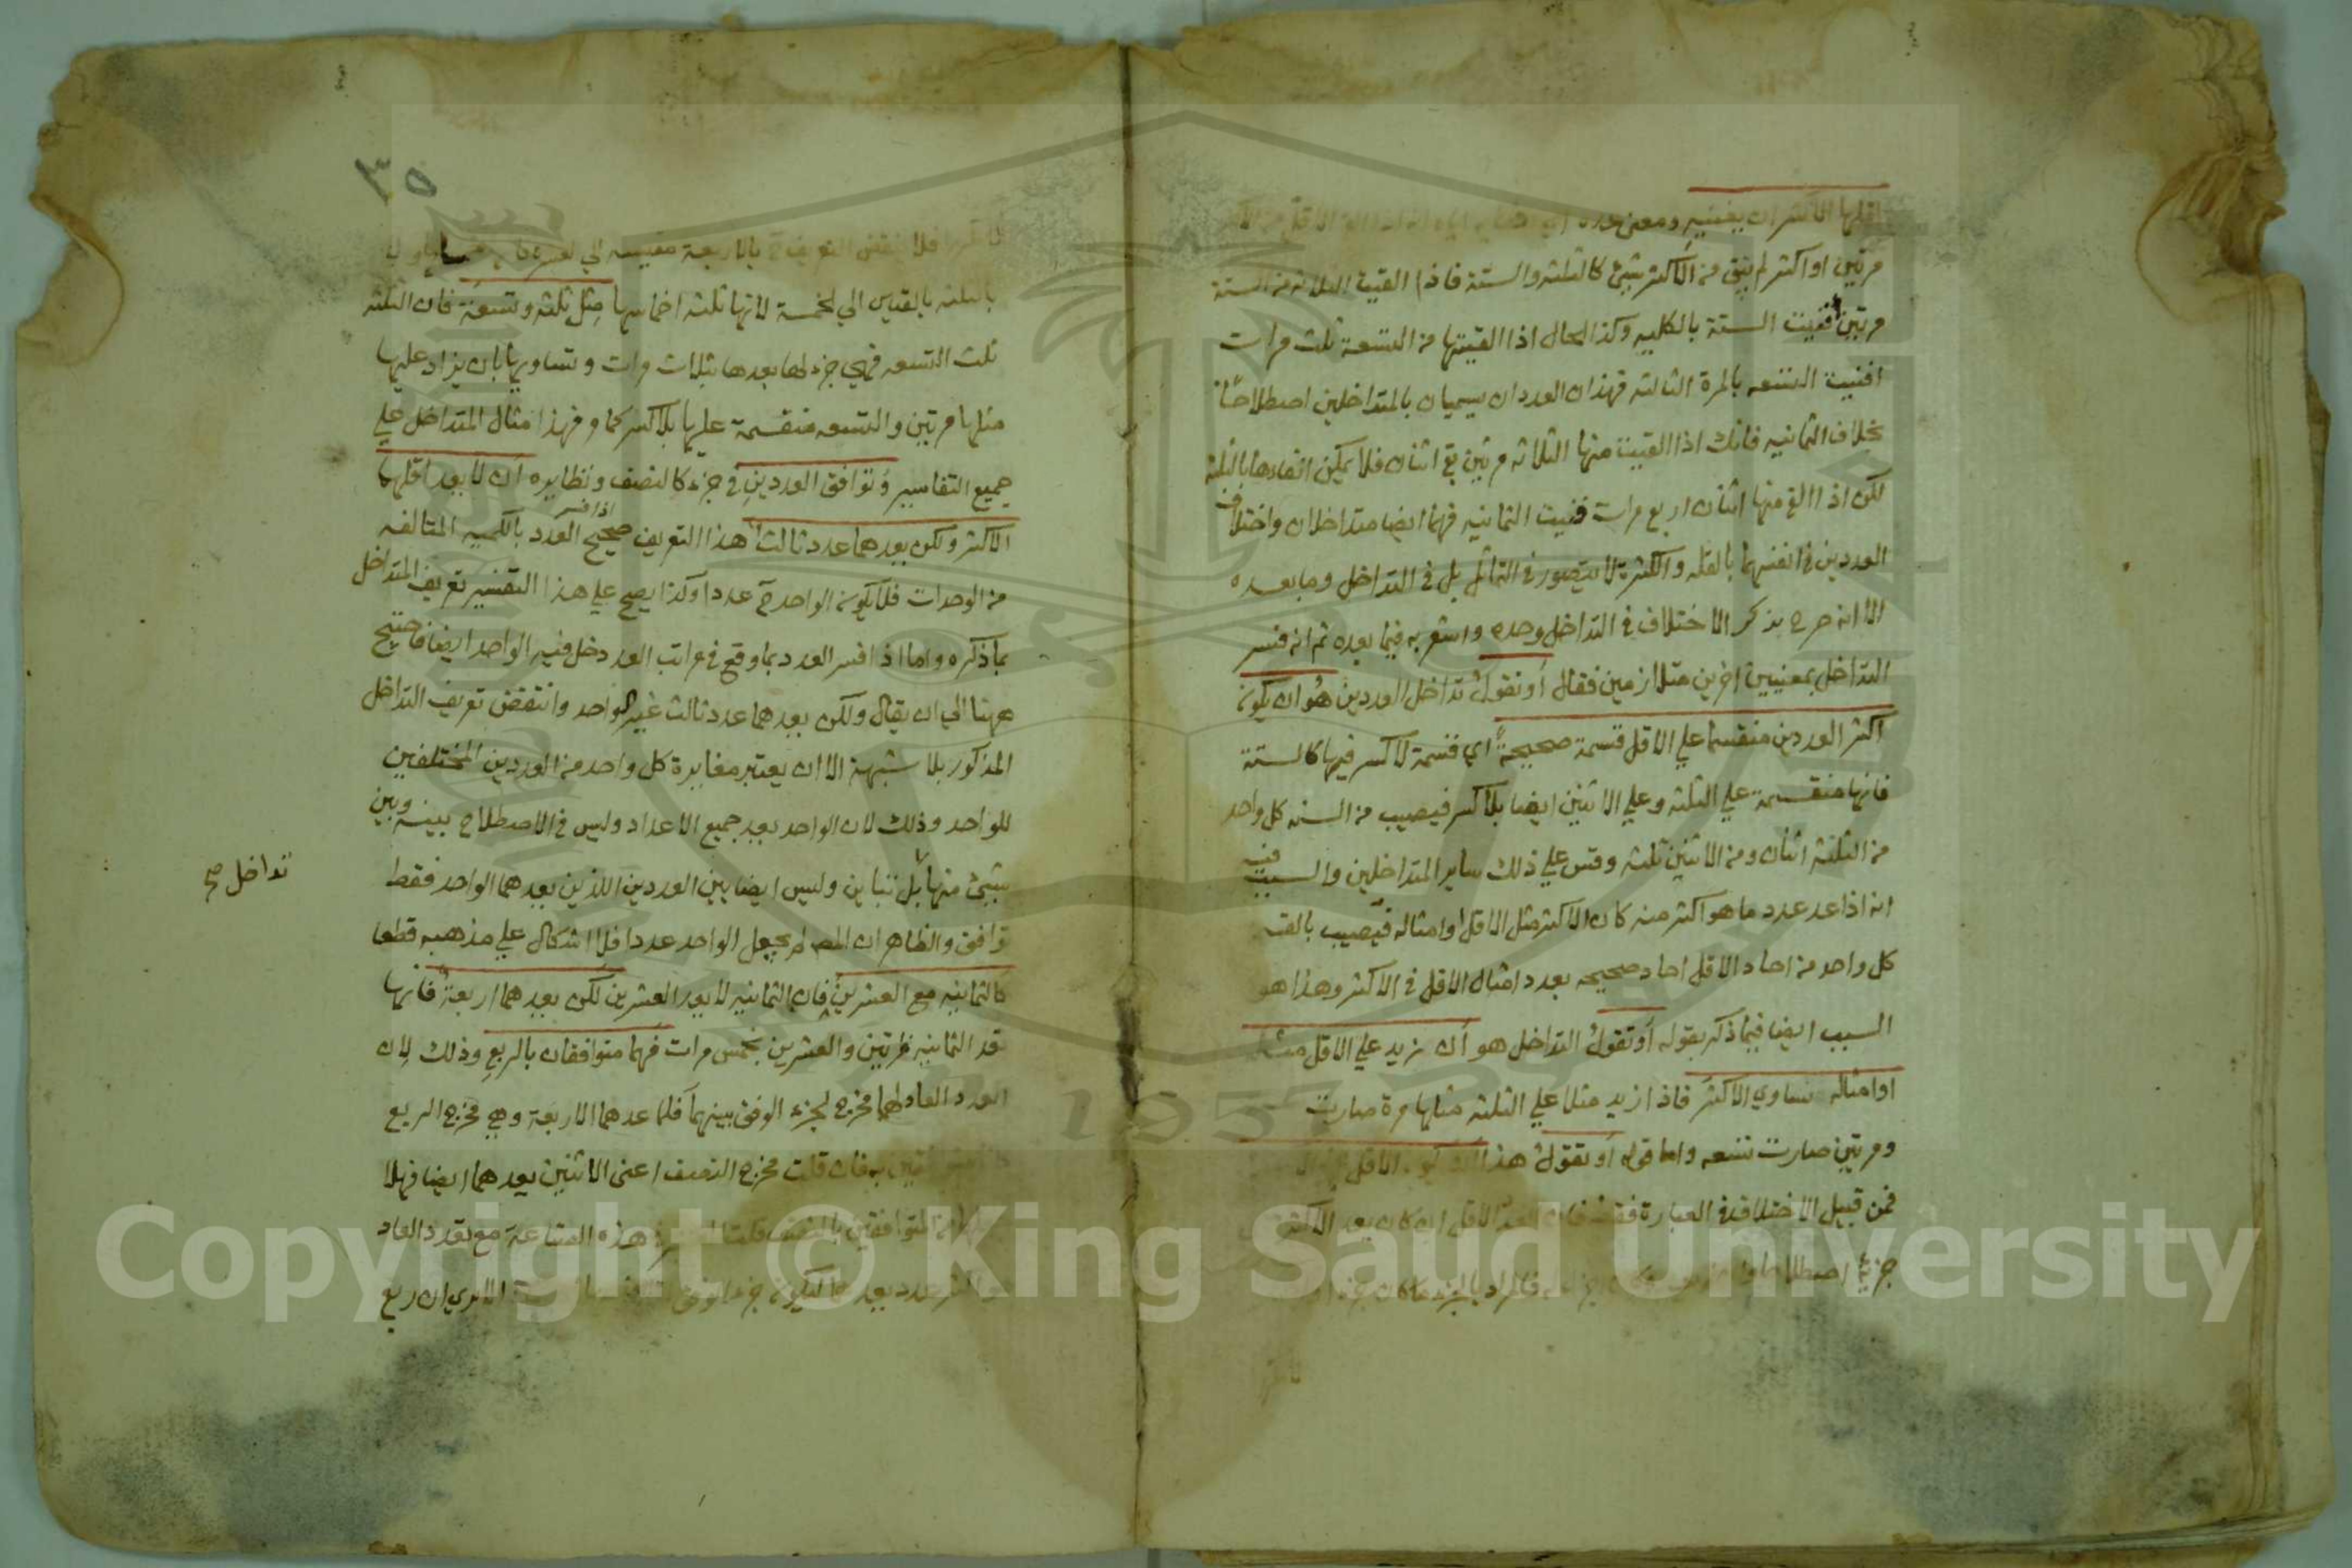 اقلها الاكثر اى يفنيه ومعنى عده
مرتين او اكثر لم يبق من الاكثر شئ كالثلثه والستة فاذا القيت الثلاثه من الستة
مرتين فنيت الستة بالكليه وكذا الحال اذا القيتها من التسعة ثلث مرات
افنيت التسعه بالمرة الثالثه فهذان العددان يسميان بالمتداخلين اصطلاحا
بخلاف الثمانيه فانك اذا القيت منها الثلاثه مرتين بقي اثنان فلا يمكن افناءها بالثلثة
لكن اذا القي منها اثنان اربع مرات فنيت الثمانيه فهما ايضا متداخلان واختلاف
العددين في انفسهما بالقله والكثرة لا يتصور في التماثل بل في التداخل وما بعده
الا انه صرح بذكر الاختلاف في التداخل وحده واشعر به فيما بعده ثم انه فسر
التداخل بمعنيين اخرين متلازمين فقال او نقول تداخل العددين هو ان يكون
اكثر العددين منقسما علي الاقل قسمة صحيحة اي قسمة لا كسر فيها كالستة
فانها منقسمة علي الثلثه وعلي الاثنين ايضا بلا كسر فيصيب من الستة كل واحد
من الثلثة اثنان ومن الاثنين ثلثه وقس علي ذلك ساير المتداخلين والسبب فيه
انه اذا عد عدد ما هو اكثر منه كان الاكثر مثل الاقل او امثاله فيصيب
كل واحد من احاد الاقل احاد صحيحه بعدد امثال الاقل في الاكثر وهذا هو
السبب ايضا فيما ذكر بقوله او نقول التداخل هو ان نزيد علي الاقل مثله
او امثاله فيساوي الاكثر فاذا زيد مثلا علي الثلثه مثلها مرة صارت
ومرتين صارت تسعه واما قوله او نقول هذا ان يكون الاقل
فمن قبيل الاختلاف في العبارة فقط فان العدد الاقل ان كان يعد الاكثر
جزءا اصطلاحا فالمراد بالجزء ما كان
٣٥
بالاربعة مقيسه الي
بالثلثه بالقياس الي الخمسة لانها ثلثه اخماسها مثل ثلثه وتسعة فان الثلثه
ثلث التسعه فهي جزء لها يعدها بثلاث مرات وتساويها بان يزاد عليها
مثلها مرتين والتسعه منقسمة عليها بلا كسر كما مر فهذا مثال المتداخل علي
جميع التفاسير وتوافق العددين في جزء كالنصف ونظايره ان لا يعد اقلهما
الاكثر ولكن يعدهما عدد ثالث هذا التعريف صحيح اذا فسر العدد بالكميه المتالفه
من الوحدات فلا يكون الواحد ح عددا وكذا يصح علي هذا التفسير تعريف المتداخل
بما ذكره واما اذا فسر العدد بما وقع في مراتب العد دخل فيه الواحد ايضا فاحتيج
ههنا الي ان يقال ولكن يعدهما عدد ثالث غير الواحد وانتقض تعريف التداخل
المذكور بلا شبهة الا ان يعتبر مغايرة كل واحد من العددين المختلفين
للواحد وذلك لان الواحد يعد جميع الاعداد وليس في الاصطلاح بينه وبين
شئ منها بل تباين وليس ايضا بين العددين اللذين يعدهما الواحد فقط
تداخل صح
توافق والظاهر ان المصـ لم يجعل الواحد عددا فلا اشكال علي مذهبه قطعا
كالثمانيه مع العشرين فان الثمانيه لا يعد العشرين لكن يعدهما اربعة فانها
تعد الثمانيه مرتين والعشرين بخمس مرات فهما متوافقان بالربع وذلك لان
العدد العاد لهما مخرج لجزء الوفق بينهما فلما عدهما الاربعة وهي مخرج الربع
به فان قلت مخرج النصف اعنى الاثنين يعدهما ايضا فهلا
من المتوافقين بالنصف قلت هذه الصناعة مع تعدد العاد
عدد يعدهما ليكون جزء الوفق الا يرى ان ربع
Copyright © King Saud University
1957